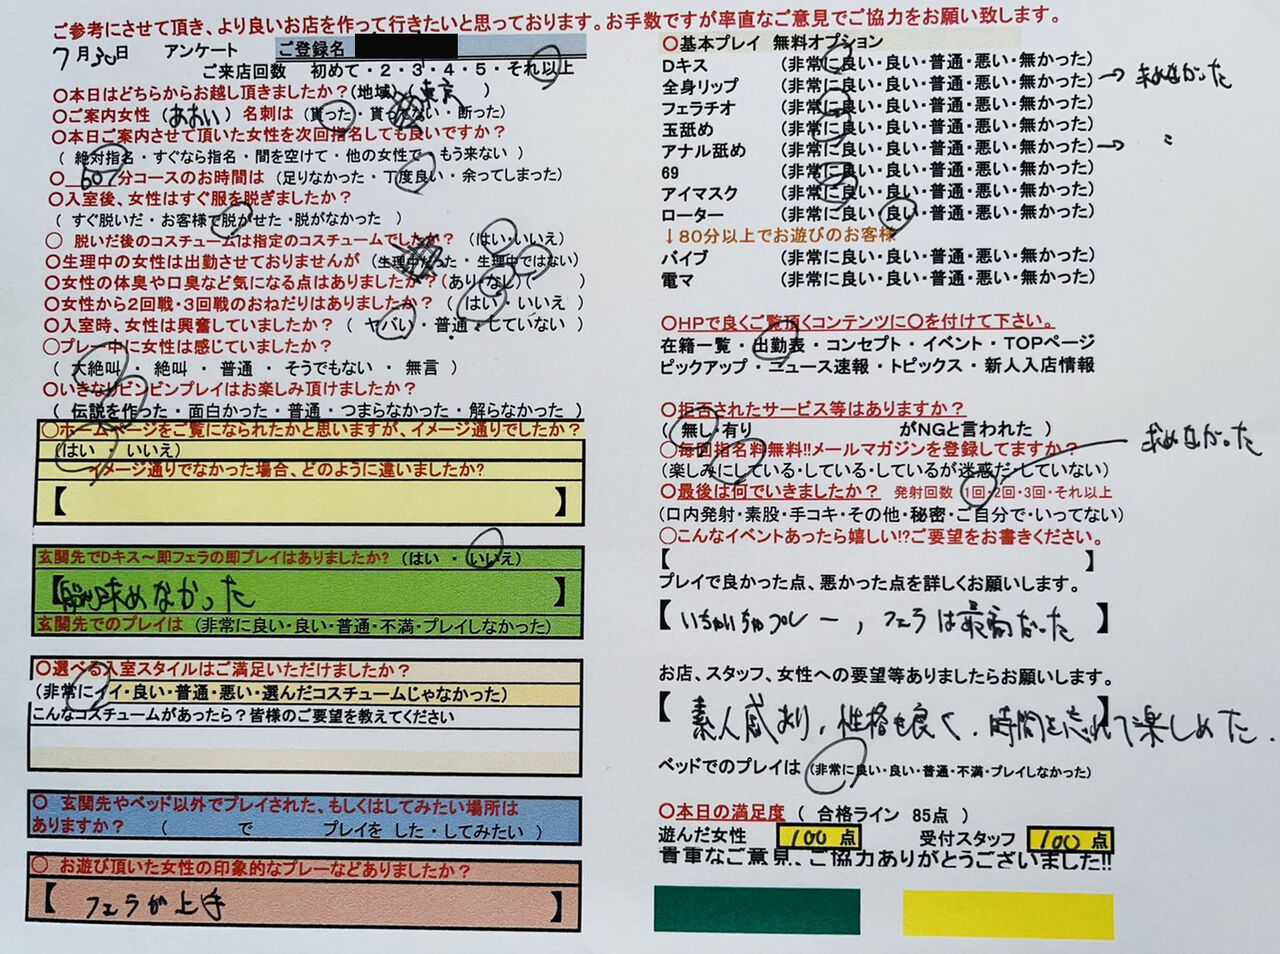 ご参考にさせて頂き、より良いお店を作って行きたいと思っております。お手数ですが率直なご意見でご協力をお願い致します。
7月30日 アンケート ご登録名
ご来店回数 初めて・2・3・4・5・それ以上
〇本日はどちらからお越し頂きましたか?(地域) (東京 )
〇ご案内女性 (あおい) 名刺は (貰った・貰ってない・断った)
〇本日ご案内させて頂いた女性を次回指名しても良いですか?
( 絶対指名・すぐなら指名・間を空けて・他の女性で・もう来ない )
〇 60分コースのお時間は (足りなかった・丁度良い・余ってしまった)
〇入室後、女性はすぐ服を脱ぎましたか?
( すぐ脱いだ・お客様で脱がせた・脱がなかった )
〇 脱いだ後のコスチュームは指定のコスチュームでしたか? (はい・いいえ)
〇生理中の女性は出勤させておりませんが (生理中だった・生理中ではない)
〇女性の体臭や口臭など気になる点はありましたか?(あり・なし)( )
〇女性から2回戦・3回戦のおねだりはありましたか? ( はい・いいえ )
〇入室時、女性は興奮していましたか? ( ヤバい・普通・していない )
〇プレー中に女性は感じていましたか?
( 大絶叫・絶叫・普通・そうでもない・無言 )
〇いきなりビンビンプレイはお楽しみ頂けましたか?
( 伝説を作った・面白かった・普通・つまらなかった・解らなかった )
〇ホームページをご覧になられたかと思いますが、イメージ通りでしたか?
(はい・いいえ)
イメージ通りでなかった場合、どのように違いましたか?
【 】
玄関先でDキス～即フェラの即プレイはありましたか? (はい ・ いいえ)
【 求めなかった 】
玄関先でのプレイは (非常に良い・良い・普通・不満・プレイしなかった)
〇選べる入室スタイルはご満足いただけましたか?
(非常にイイ・良い・普通・悪い・選んだコスチュームじゃなかった)
こんなコスチュームがあったら?皆様のご要望を教えてください
〇 玄関先やベッド以外でプレイされた、もしくはしてみたい場所は
ありますか? ( で プレイを した・してみたい )
〇 お遊び頂いた女性の印象的なプレーなどありましたか?
【 フェラが上手 】
〇基本プレイ 無料オプション
Dキス (非常に良い・良い・普通・悪い・無かった)
全身リップ (非常に良い・良い・普通・悪い・無かった) → 求めなかった
フェラチオ (非常に良い・良い・普通・悪い・無かった)
玉舐め (非常に良い・良い・普通・悪い・無かった)
アナル舐め (非常に良い・良い・普通・悪い・無かった) → 〃
69 (非常に良い・良い・普通・悪い・無かった)
アイマスク (非常に良い・良い・普通・悪い・無かった)
ローター (非常に良い・良い・普通・悪い・無かった)
↓80分以上でお遊びのお客様
バイブ (非常に良い・良い・普通・悪い・無かった)
電マ (非常に良い・良い・普通・悪い・無かった)
〇HPで良くご覧頂くコンテンツに〇を付けて下さい。
在籍一覧・出勤表・コンセプト・イベント・TOPページ
ピックアップ・ニュース速報・トピックス・新人入店情報
〇拒否されたサービス等はありますか?
( 無し・有り がNGと言われた )
〇毎回指名料無料!!メールマガジンを登録してますか? 求めなかった
(楽しみにしている・している・しているが迷惑だ・していない)
〇最後は何でいきましたか? 発射回数 1回・2回・3回・それ以上
(口内発射・素股・手コキ・その他・秘密・ご自分で・いってない)
〇こんなイベントあったら嬉しい!?ご要望をお書きください。
【 】
プレイで良かった点、悪かった点を詳しくお願いします。
【 いちゃいちゃプレー，フェラは最高だった 】
お店、スタッフ、女性への要望等ありましたらお願いします。
【 素人感あり，性格も良く、時間を忘れて楽しめた． 】
ベッドでのプレイは (非常に良い・良い・普通・不満・プレイしなかった)
〇本日の満足度 ( 合格ライン 85点 )
遊んだ女性 100 点 受付スタッフ 100 点
貴重なご意見、ご協力ありがとうございました!!